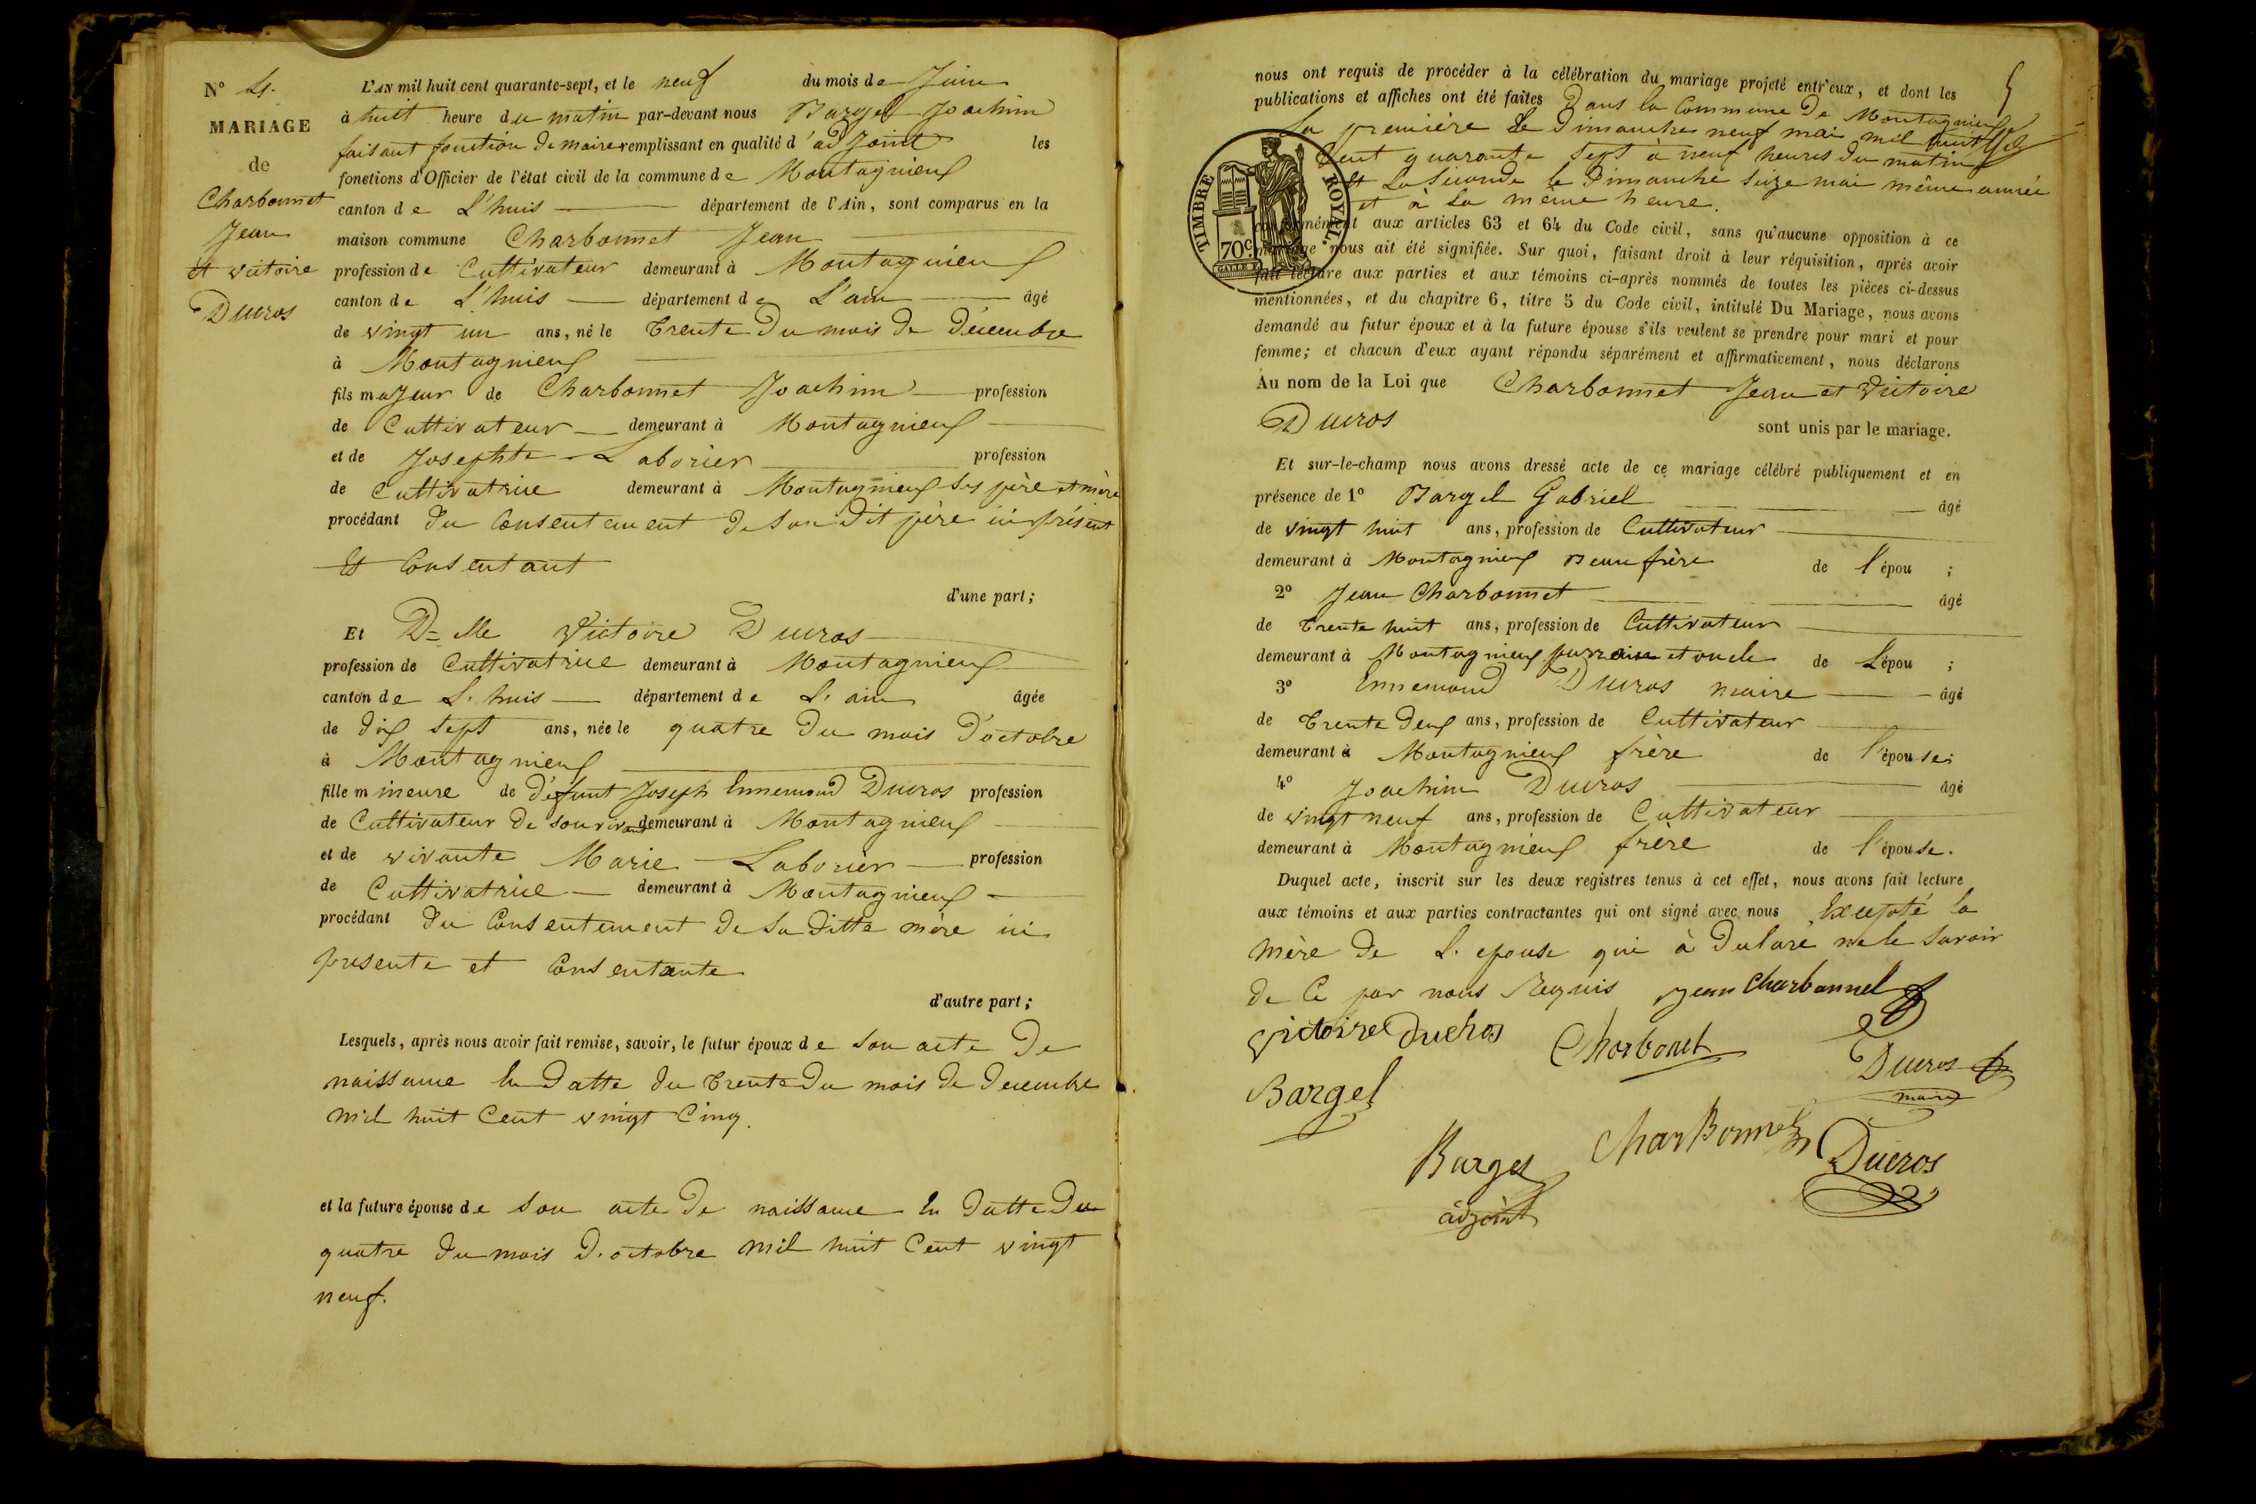 N° 4.
MARIAGE
de
Charbonnet
Jean
et victoire
Ducros
L'AN mil huit cent quarante-sept, et le neuf du mois de Juin
à huit heure du matin par-devant nous Barget Joachim
faisant fonction de maire remplissant en qualité d'adjoint les
fonctions d'Officier de l'état civil de la commune de Montagnieux
canton de L'huis département de l'Ain, sont comparus en la
maison commune Charbonnet Jean
profession de Cultivateur demeurant à Montagnieu
canton de L'huis département de L'ain âgé
de vingt un ans, né le trente Du mois de décembre
à Montagnieux
fils majeur de Charbonnet Joachim profession
de Cultivateur demeurant à Montagnieux
et de Josephte Laborier profession
de Cultivatrice demeurant à Montagnieux ses père et mère
procédant du Consentement de son dit père ici présent
Et Consentant
d'une part;
Et D=lle Victoire Ducros
profession de Cultivatrice demeurant à Montagnieux
canton de L'huis département de L'ain âgée
de dix sept ans, née le quatre Du mois d'octobre
à Montagnieux
fille mineure de défunt Joseph Ennemond Ducros profession
de Cultivateur de son vivant demeurant à Montagnieux
et de vivante Marie Laborier profession
de Cultivatrice demeurant à Montagnieux
procédant du Consentement de sa ditte mère ici
présente et Consentante
d'autre part;
Lesquels, après nous avoir fait remise, savoir, le futur époux de son acte De
naissance En Datte du trente Du mois de Decembre
mil huit Cent vingt Cinq.
et la future épouse de son acte De naissance En Datte Du
quatre du mois D'octobre mil huit Cent vingt
neuf.
5
nous ont requis de procéder à la célébration du mariage projeté entr'eux, et dont les
publications et affiches ont été faites Dans la Commune De Montagnieux
La première Le Dimanche neuf mai mil huit
Cent quarante sept à neuf heures du matin
Et La Seconde le Dimanche seize mai même année
et à la même heure.
TIMBRE ROYAL.
70c.
conformément aux articles 63 et 64 du Code civil, sans qu'aucune opposition à ce
mariage nous ait été signifiée. Sur quoi, faisant droit à leur réquisition, après avoir
fait lecture aux parties et aux témoins ci-après nommés de toutes les pièces ci-dessus
mentionnées, et du chapitre 6, titre 5 du Code civil, intitulé Du Mariage, nous avons
demandé au futur époux et à la future épouse s'ils veulent se prendre pour mari et pour
femme; et chacun d'eux ayant répondu séparément et affirmativement, nous déclarons
Au nom de la Loi que Charbonnet Jean et Victoire
Ducros sont unis par le mariage.
Et sur-le-champ nous avons dressé acte de ce mariage célébré publiquement et en
présence de 1° Bargel Gabriel âgé
de vingt huit ans, profession de Cultivateur
demeurant à Montagnieux Beau frère de l'épou ;
2° Jean Charbonnet âgé
de trente huit ans, profession de Cultivateur
demeurant à Montagnieux parrain et oncle de L'épou ;
3° Ennemond Ducros maire âgé
de trente deux ans, profession de Cultivateur
demeurant à Montagnieux frère de l'épouse;
4° Joachim Ducros âgé
de vingt neuf ans, profession de Cultivateur
demeurant à Montagnieux frère de l'épouse.
Duquel acte, inscrit sur les deux registres tenus à cet effet, nous avons fait lecture
aux témoins et aux parties contractantes qui ont signé avec nous Excepté la
mère De L'epouse qui à Declaré ne le savoir
de Ce par nous Requis Jean Charbonnel
Victoire Ducros Charbonet
Ducros
maire
Bargel
CharBonnet
Barget Ducros
adjoint